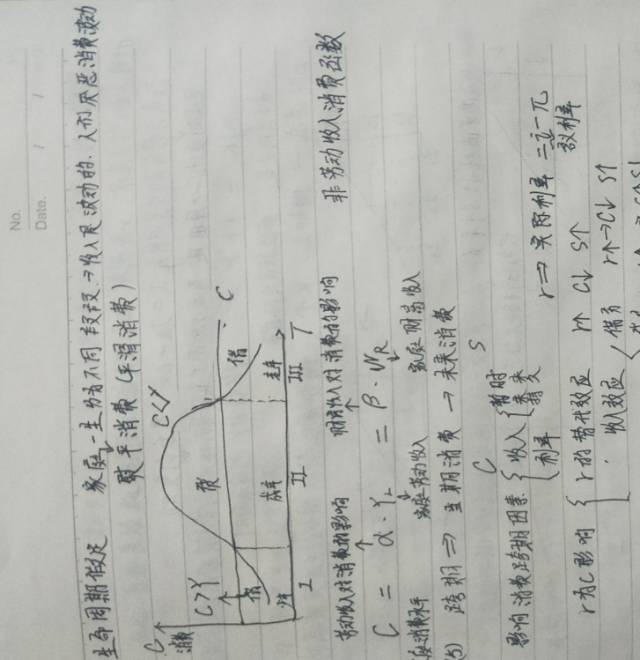 No.
Date. / /
生命周期假定 家庭一生分为不同阶段→收入是波动的.人们厌恶消费波动
熨平消费(平滑消费)
C
消费
C>Y
C<Y
C
借
储
借
少年
成年
老年
I
II
III
T
劳动收入对消费的影响 财富收入对消费的影响 非劳动收入消费函数
C = α·YL = β·WR
消费水平 家庭劳动收入 家庭财富收入
(5) 跨期 ⇒ 当期消费 → 未来消费
C S
影响消费跨期因素 { 收入 { 暂时
未来
利率
r → 实际利率 = i - π
r对C影响 { r的替代效应 r↑ C↓ S↑
收入效应 { 借方 r↑→C↓ S↑